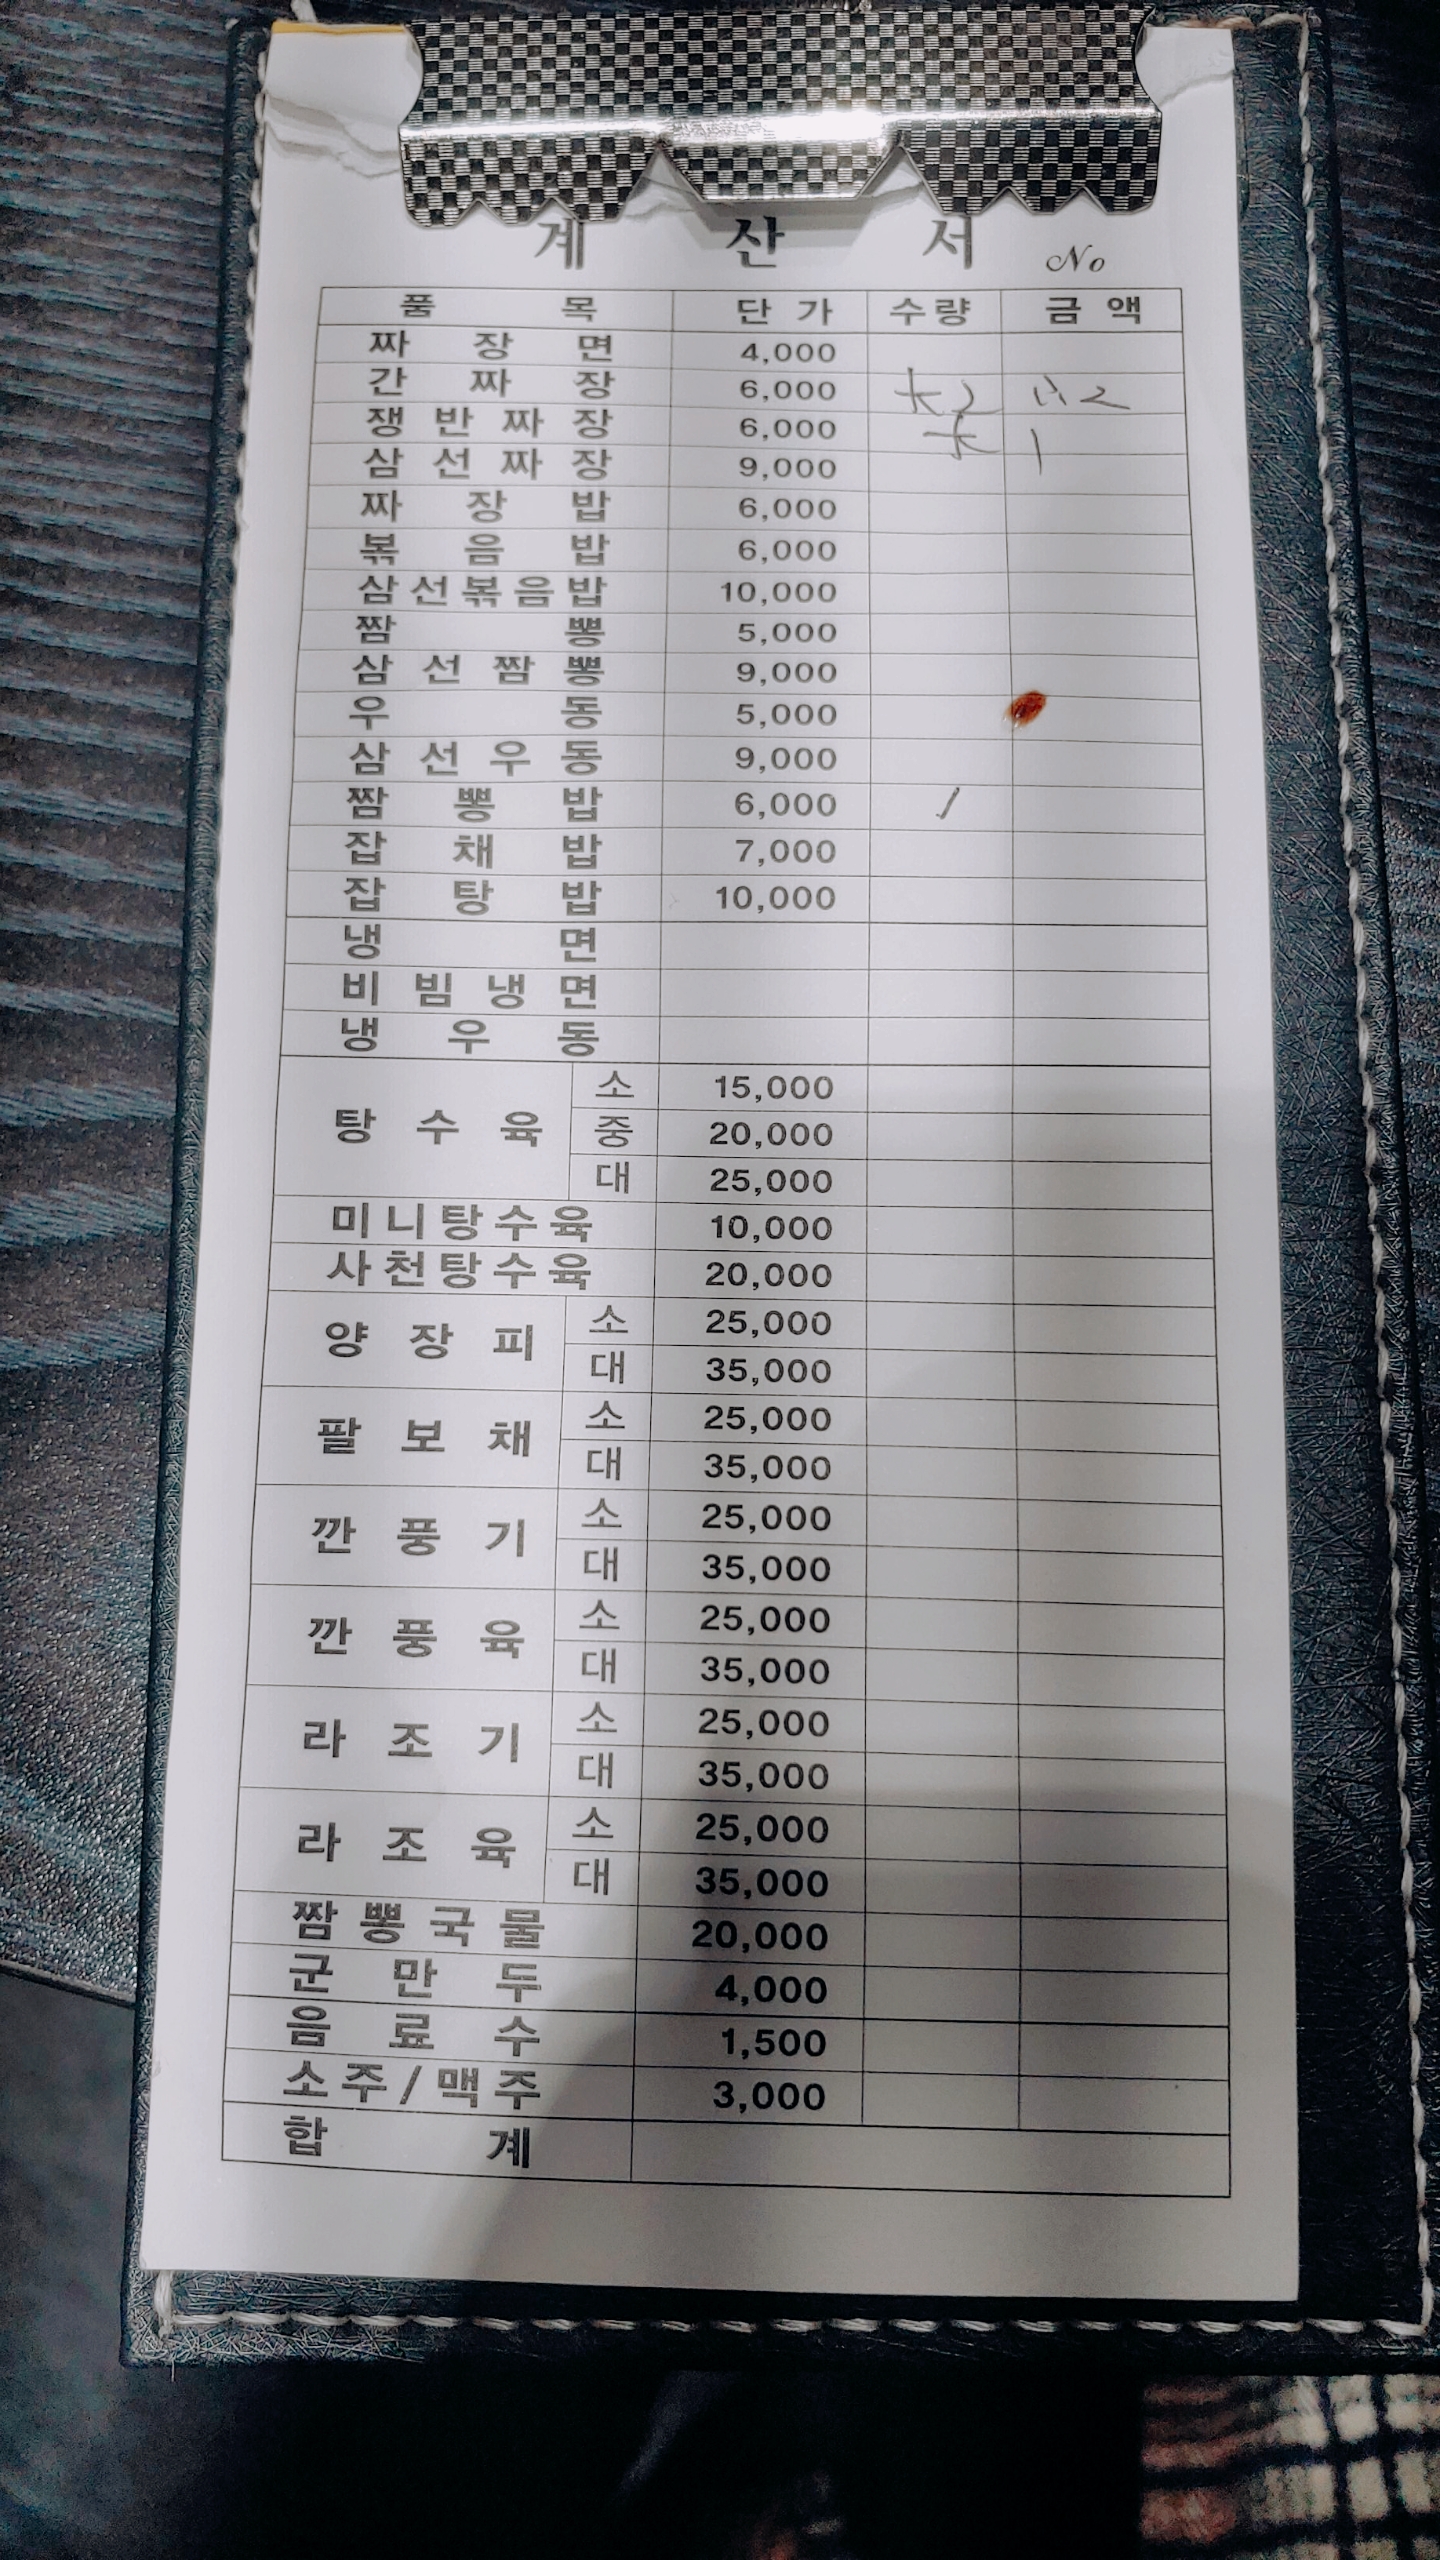 계 산 서 No
품 목 단 가 수량 금 액
짜 장 면 4,000
간 짜 장 6,000 大2 小2
쟁 반 짜 장 6,000 大 1
삼 선 짜 장 9,000
짜 장 밥 6,000
볶 음 밥 6,000
삼선볶음밥 10,000
짬 뽕 5,000
삼 선 짬 뽕 9,000
우 동 5,000
삼 선 우 동 9,000
짬 뽕 밥 6,000 /
잡 채 밥 7,000
잡 탕 밥 10,000
냉 면
비 빔 냉 면
냉 우 동
탕 수 육 소 15,000
중 20,000
대 25,000
미니탕수육 10,000
사천탕수육 20,000
양 장 피 소 25,000
대 35,000
팔 보 채 소 25,000
대 35,000
깐 풍 기 소 25,000
대 35,000
깐 풍 육 소 25,000
대 35,000
라 조 기 소 25,000
대 35,000
라 조 육 소 25,000
대 35,000
짬 뽕 국 물 20,000
군 만 두 4,000
음 료 수 1,500
소주/맥주 3,000
합 계